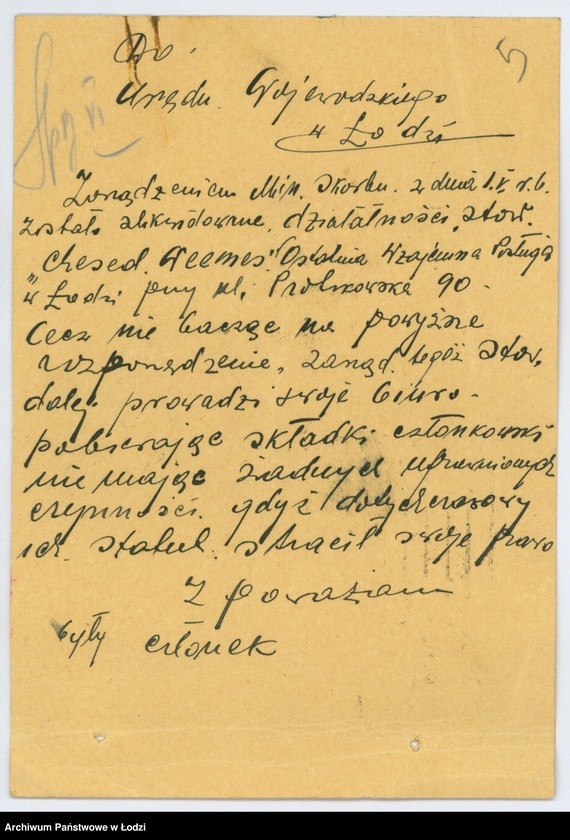 Do
5
Urzędu Wojewodzkiego
w Łodzi
Zarządzeniem Min. Skarbu. z dnia 1.V. r.b.
zostało zlikwidowane, działalności, stow.
"Chesed. Geemes" Ostatnia Wzajemna Posługa
w Łodzi przy ul. Piotrkowska 90.
Lecz nie bacząc na powyższe
rozporządzenie, zarząd. tegoż stow.
dalej prowadzi swoje biuro.
pobierając składki członkowski
nie mając żadnych uprawnionych
czynności. gdyż dotychczasowy
ich. statut. stracił swoje prawo
Z poważaniem
były członek
Archiwum Państwowe w Łodzi